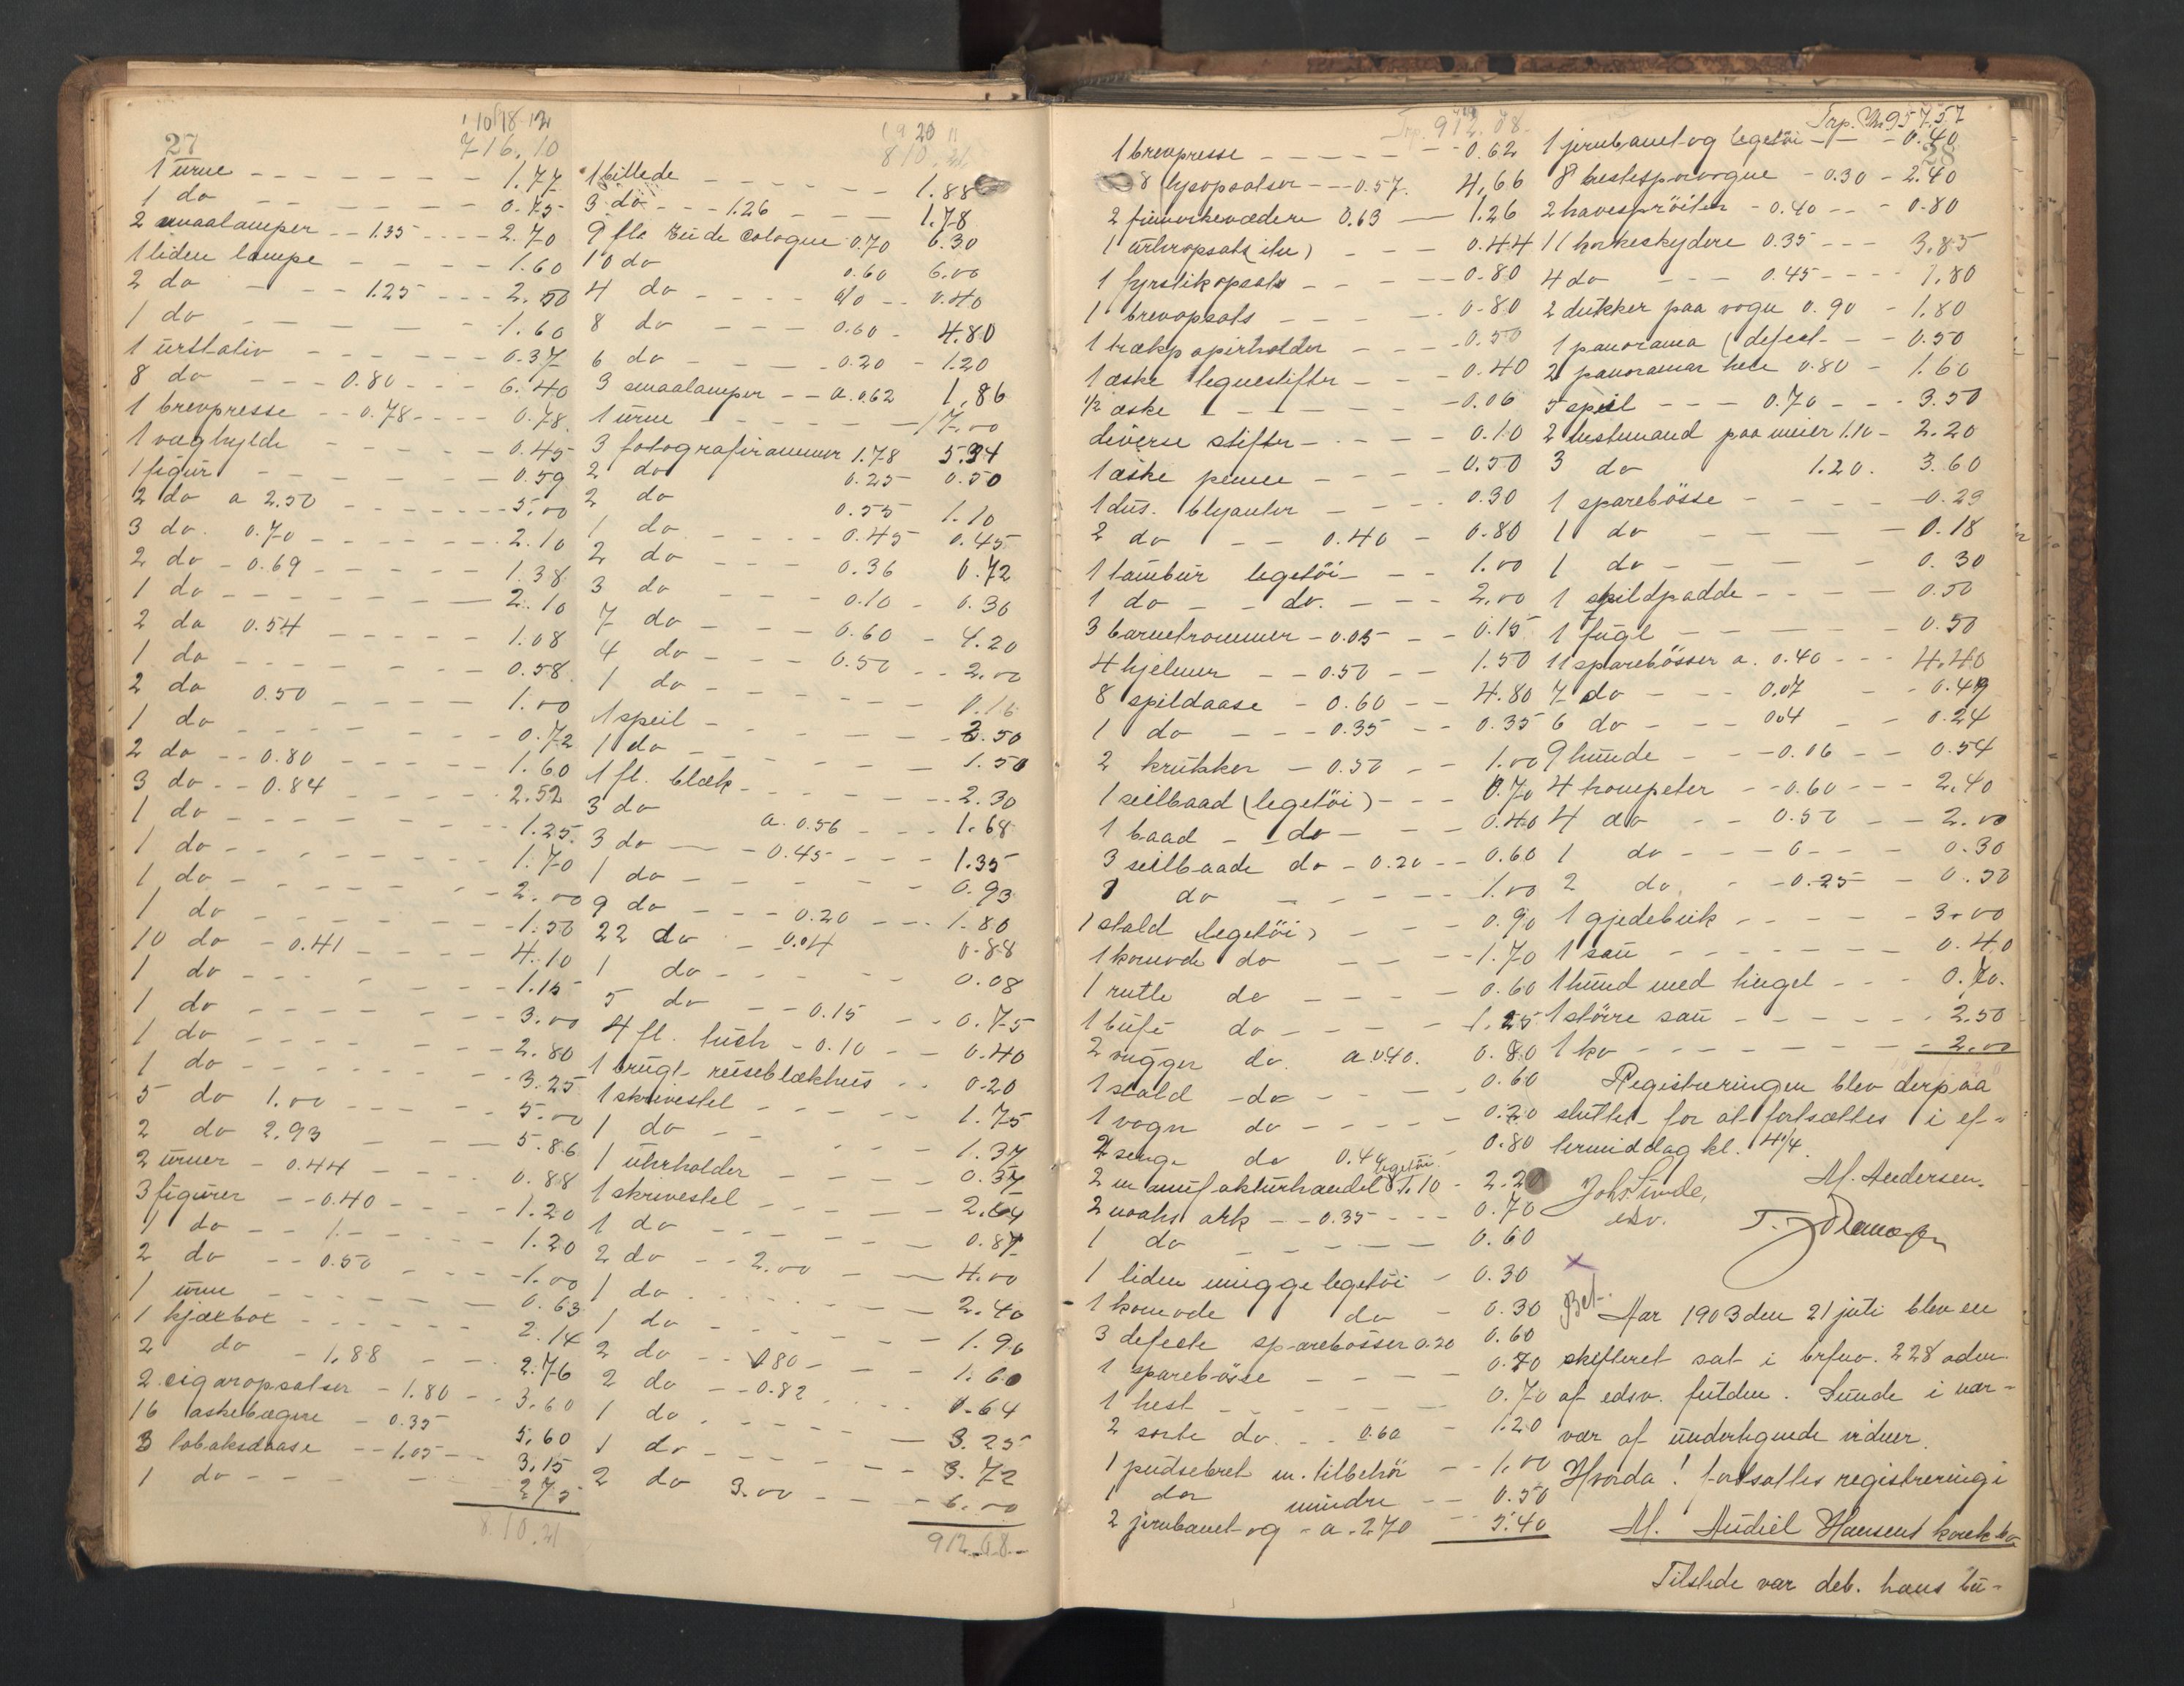 27
716.10
1 urne - - - - - - - 1.77
1 do - - - - - - 0.75
2 smaalamper - - 1.35 - - - - 2.70
1 liden lampe - - - - - 1.60
2 do - - - 1.25 - - - 2.50
1 do - - - - - - 1.60
1 urstativ - - - - - 0.37
8 do - - - 0.80 - - - 6.40
1 brevpresse - - 0.78 - - - - 0.78
1 væghylde - - - - - 0.45
1 figur - - - - - - 0.59
2 do a 2.50 - - - - - - 5.00
3 do. 0.70 - - - - - - 2.10
2 do - 0.69 - - - - - 1.38
1 do - - - - - - - 2.10
2 do 0.54 - - - - - 1.08
1 do - - - - - - 0.58
2 do 0.50 - - - - - 1.00
1 do - - - - - - 0.72
2 do - - 0.80 - - - - - 1.60
3 do - - 0.84 - - - - 2.52
1 do - - - - - - - 1.25
1 do - - - - - - - 1.70
1 do - - - - - - - 2.00
1 do - - - - - - 1.50
10 do - 0.41 - - - - 4.10
1 do - - - - - - 1.15
1 do - - - - - - 3.00
1 do - - - - - - 2.80
1 do - - - - - - 3.25
5 do 1.00 - - - - 5.00
2 do 2.93 - - - 5.86
2 urner - 0.44 - - - 0.88
3 figurer - - 0.40 - - - - 1.20
1 do - - 1. - - - - - 1.20
2 do - - 0.50 - - - - 1.00
1 urne - - - - - - 0.63
1 hjælboe - - - - - - 2.14
2 do - 1.88 - - - 2.76
2 cigaropsatser - 1.80 - - 3.60
16 askebægere - 0.35 5.60
3 tobaksdaase - - 1.05 - - 3.15
1 do - - - - - 2.75
810.21
810.21
1 billede - - - - - - 1.88
3 do - - - 1.26 - - - 1.78
9 fla Eude Cologne 0.70 6.30
10 do 0.60 6.00
4 do - - - - a/o - - 0.40
8 do - - - 0.60 - 4.80
6 do - - - - 0.20 - 1.20
3 smaalamper - - a. 0.62 1.86
1 urne - - - - - - 17.00
3 fotografirammer 1.78 5.34
2 do 0.25 0.50
2 do 0.55 1.10
1 do - - - - 0.45 0.45
2 do - - - 0.36 0.72
3 do - - - 0.10 - 0.30
7 do - - - 0.60 - 4.20
4 do - - - 0.50 - - 2.00
1 do - - - - - - - 0.16
1 speil - - - - - - - 2.50
1 do - - - - - - 1.50
1 fl. blæk - - - - - 2.30
3 do a. 0.56 - - - 1.68
3 do - - 0.45 - - - 1.35
1 do - - - - - - 0.93
9 do - - - 0.20 - - - 1.80
22 do - 0.04 0.88
1 do - - - - - 0.08
5 do - - 0.15 - - 0.75
4 fl. tuch - 0.10 - - 0.40
1 brugt reiseblækhus - - 0.20
1 skrivestel - - - - - 1.75
1 do - - - - - 1.37
1 uhrholder - - - - 0.37
1 skrivestel - - - - - - 2.64
1 do - - - - - - - 0.87
2 do - - 2.00 - - - 4.00
1 do - - - - - - 2.40
1 do - - - - - - 1.90
2 do - - 0.80 - - - 1.60
2 do - - 0.82 - - - 1.64
1 do - - - - - - 3.25
1 do - - - - - - - 3.72
2 do 3.00 - - - 6.00
912.08
Trp. 912.08
1 brevpresse - - - - - - - 0.62
8 lysopsatser - - - 0.57. 4.66
2 0.63 — 1.26
1 uhropsats - - - 0.44
1 fyrstikopsats - - - - - 0.80
1 brevopsats - - - - - 0.80
1 trækpapirholder - - - 0.50
1 æske tegnestifter - - - 0.40
1/2 æske - - - - - - 0.06
diverse stifter - - - - - 0.10
1 æske penne - - - - 0.50
1 dus. blyanter - - - - 0.30
2 do - - 0.40 - 0.80
1 tambur legetöi - - - 1.00
1 do - - do. - - - 2.00
3 barnetrommer - 0.05 - - 0.15
4 hjelmer - - 0.50 - - 1.50
8 spildaase - 0.60 - - 4.80
1 do - - - 0.35 - - 0.35
2 krukker - 0.50 - - 1.00
1 seilbaad (legetöi) - - - 0.70
1 baad - do - - - 0.40
3 seilbaade do - 0.20 - - 0.60
1 do - - - - - 1.00
1 stald (legetöi) - - - 0.90
1 komode do - - - 1.70
1 do - - - - 0.60
1 bufé do - - - - 1.25
2 vugger do. a 0.40. 0.80
1 stald do - - - - 0.60
1 vogn do - - - - - 0.20
2 senge do 0.40 0.80
2 manufakturhandel legetöi 1.10 - 2.20
2 noahs ark - - 0.35 - - - 0.70
1 do - - - - - 0.60
1 liden vugge legetöi - 0.30
1 komode do - 0.30
3 defecte sparebösser 0.20 0.60
1 sparebösse - - - - 0.70
1 hest - - - - - - 0.70
2 sorte do. - - 0.60 - 1.20
1 pudsebret m. tilbehör - - 1.00
1 do mindre - - 0.50
2 jernbanetog - a. 2.70 - - 5.40
Trp. Kr 957.57
28
1 jernbanetog legetöi - - - 0.40
8 hestesporvogne - 0.30 - 2.40
2 havespröiter - 0.40 - - - 0.80
11 korkeskydere 0.35 - - - 3.85
4 do - - 0.45 - - - - 1.80
2 dukker paa vogn 0.90 - 1.80
1 panorama (defect - - 0.50
2 panoramar hele 0.80 - 1.60
5 speil - - - 0.70 - - - 3.50
2 hestemand paa meier 1.10 - 2.20
3 do 1.20. 3.60
1 sparebösse - - - - - 0.29
1 do - - - - 0.18
1 do - - - - - 0.30
1 spildpadde - - - - 0.50
1 fugl - - - - - 0.50
11 sparebösser a. 0.40 - - - 4.40
7 do - - - 0.07 - - 0.49
6 do - - 004 - - 0.24
9 hunde - - - 0.06 - - 0.54
4 trompeter - - 0.60 - - - 2.40
4 do - - 0.50 - - 2.00
1 do - - - 0 - - - 0.30
2 do - - 0.25 - 0.50
1 gjedebuk - - - - - 3.00
1 sau - - - - - - - 0.40
1 hund med hingel - - - 0.70.
1 större sau - - - - - - 2.50
1 ko - - - - - - - 2.00
Registreringen blev derpaa
sluttet for at fortsættes i ef-
termiddag kl. 4 1/4.
M. Andersen.
Johs Sunde,
edsv.
Bet.
Aar 1903 den 21 juli blev en
skifteret sat i brfuv. 228 aden
af edsv. fuldm. Sunde i nær-
vær af undertegnede vidner.
Hvorda! fortsattes registrering i
M. Audiel Hansens konk.bo
Tilstede var deb. hans bu-